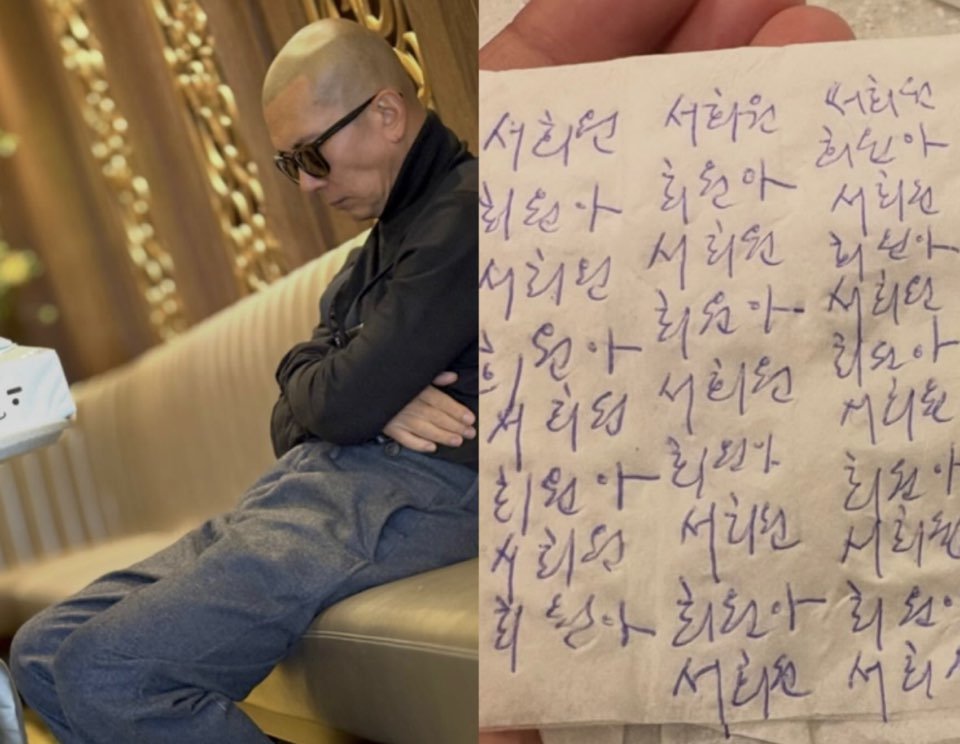 서희원
희원아
서희원
희원아
서희원
희원아
서희원
희원아
서희원
희원아
서희원
희원아
서희원
희원아
서희원
희원아
서희원
서희원
희원아
서희원
희원아
서희원
희원아
서희원
희원아
서희원
희원
서희